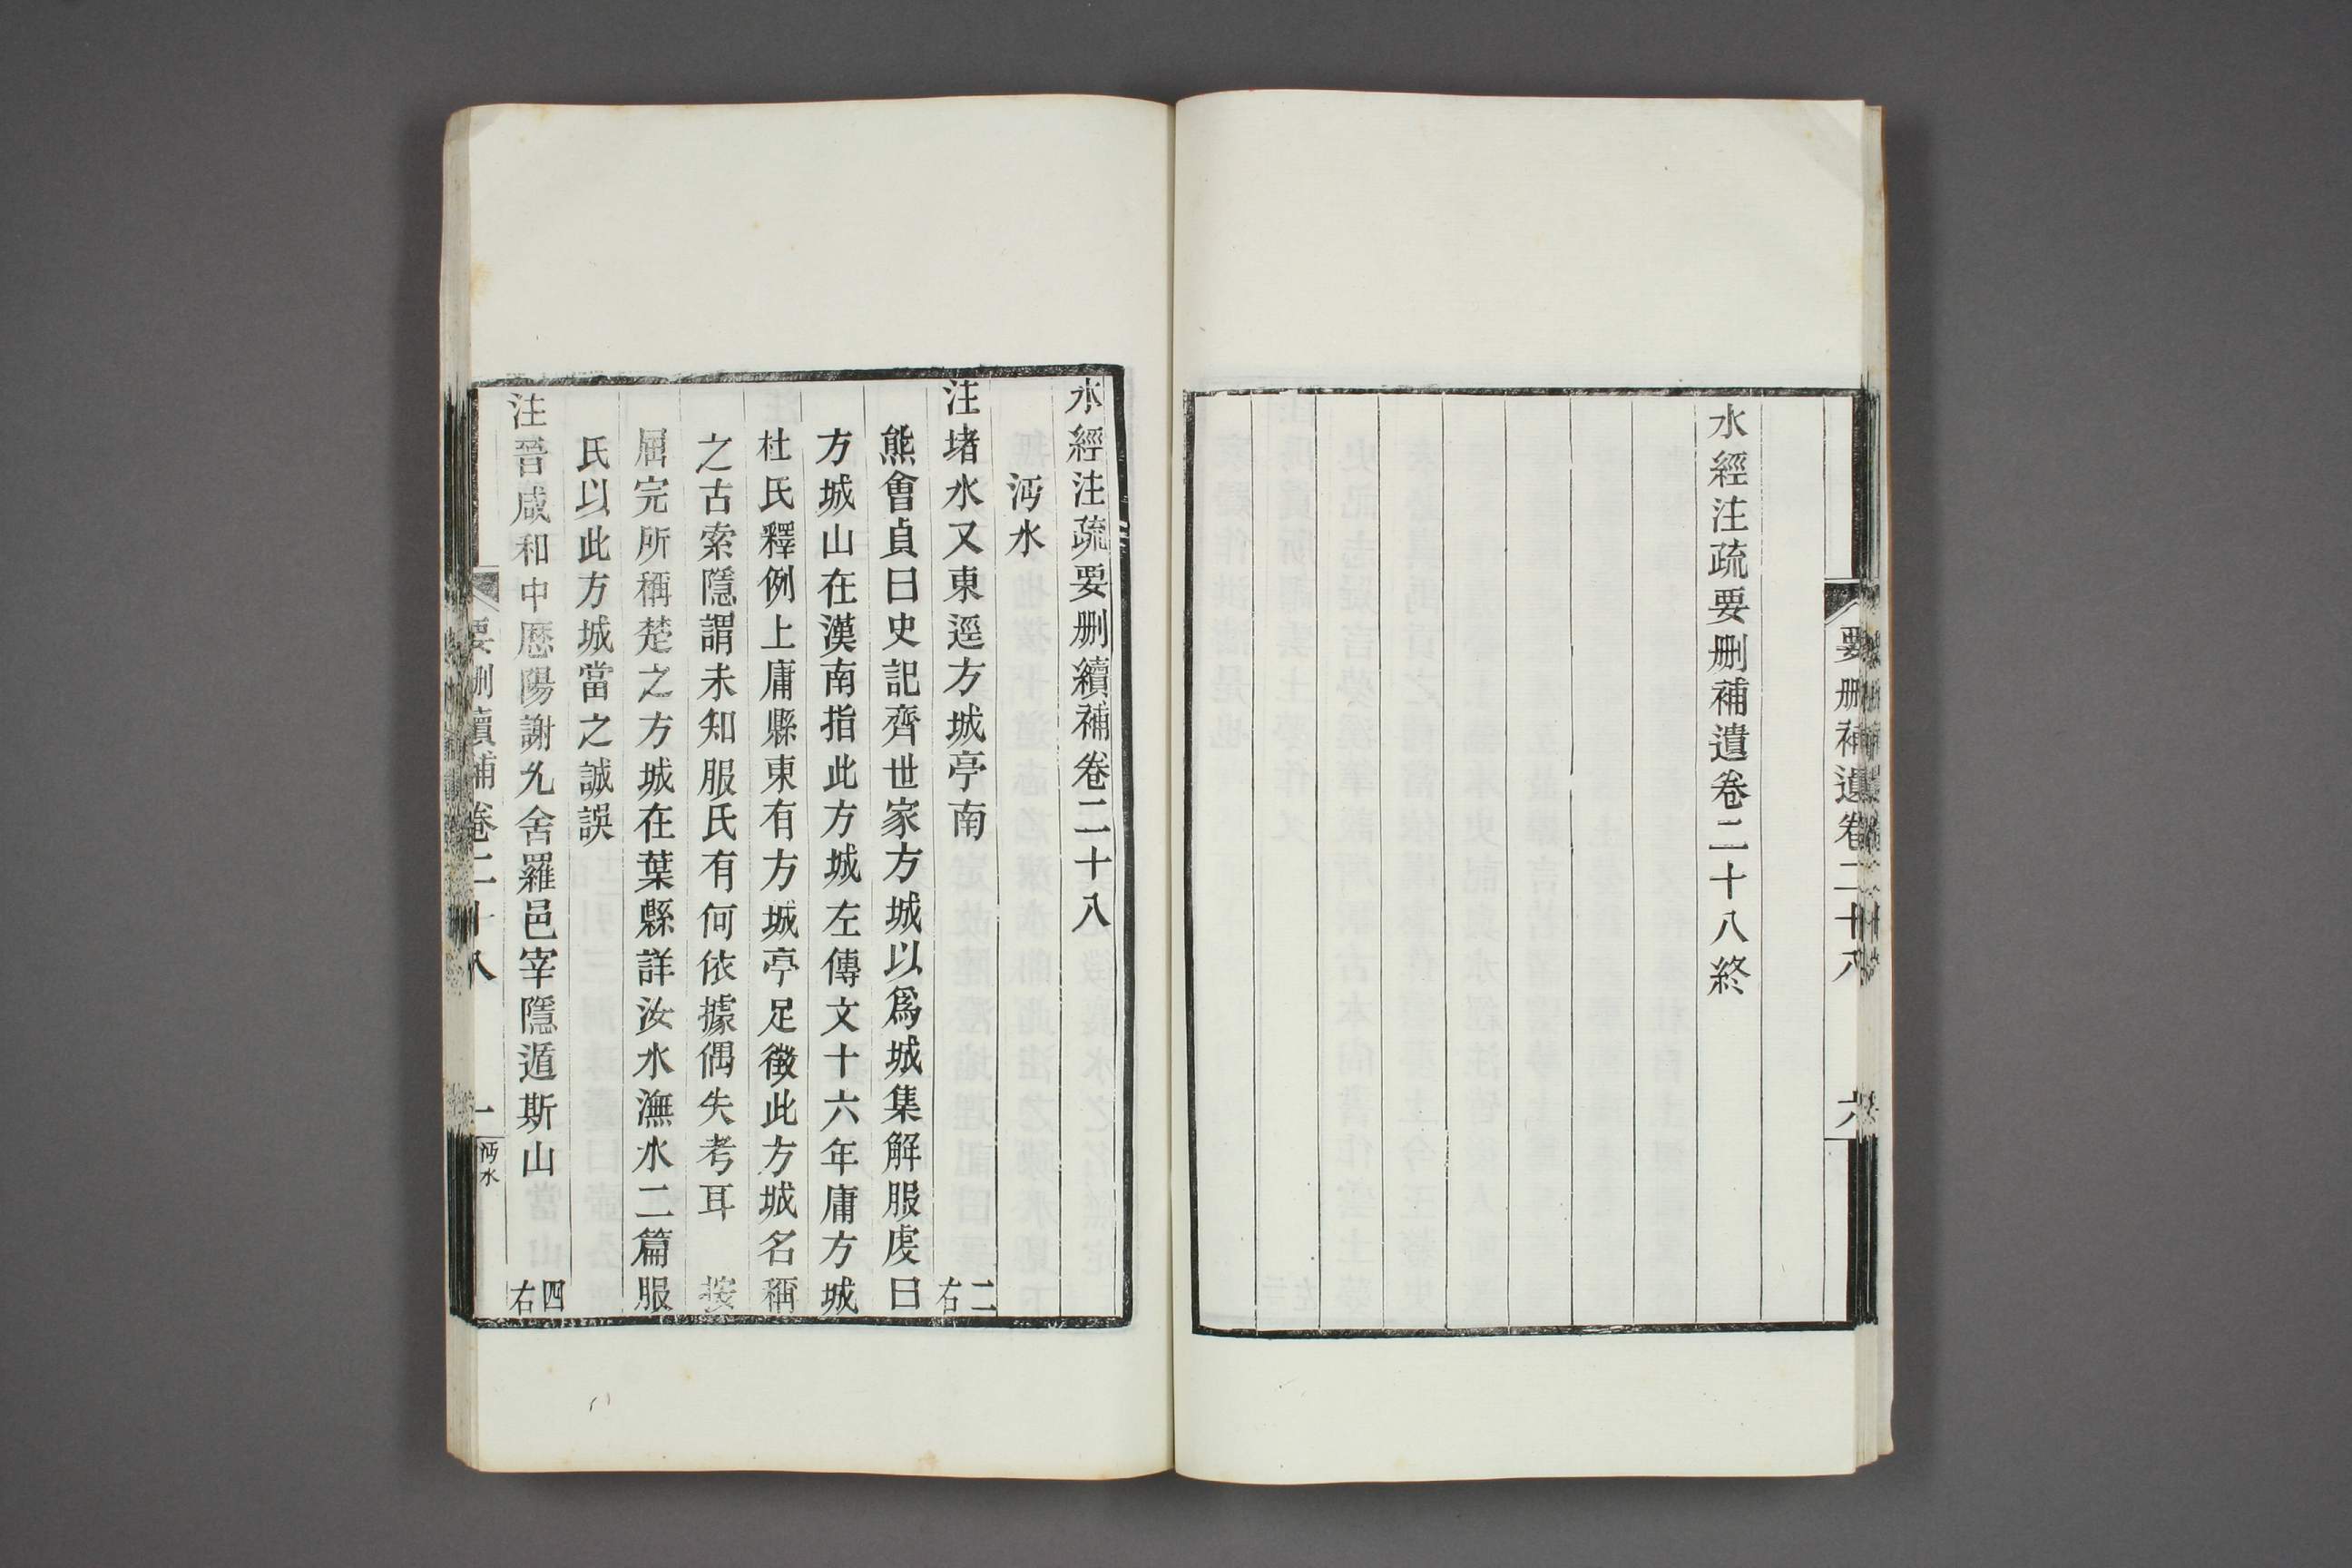 要删補遺卷二十八
六
水經注疏要删補遺卷二十八終
水經注疏要删續補卷二十八
沔水
注堵水又東逕方城亭南 二右
熊會貞曰史記齊世家方城以爲城集解服虔曰
方城山在漢南指此方城左傳文十六年庸方城
杜氏釋例上庸縣東有方城亭足徵此方城名稱
之古索隱謂未知服氏有何依據偶失考耳 按
屈完所稱楚之方城在葉縣詳汝水潕水二篇服
氏以此方城當之誠誤
注晉咸和中歷陽謝允舍羅邑宰隱遁斯山 四右
要删續補卷二十八
一
沔水